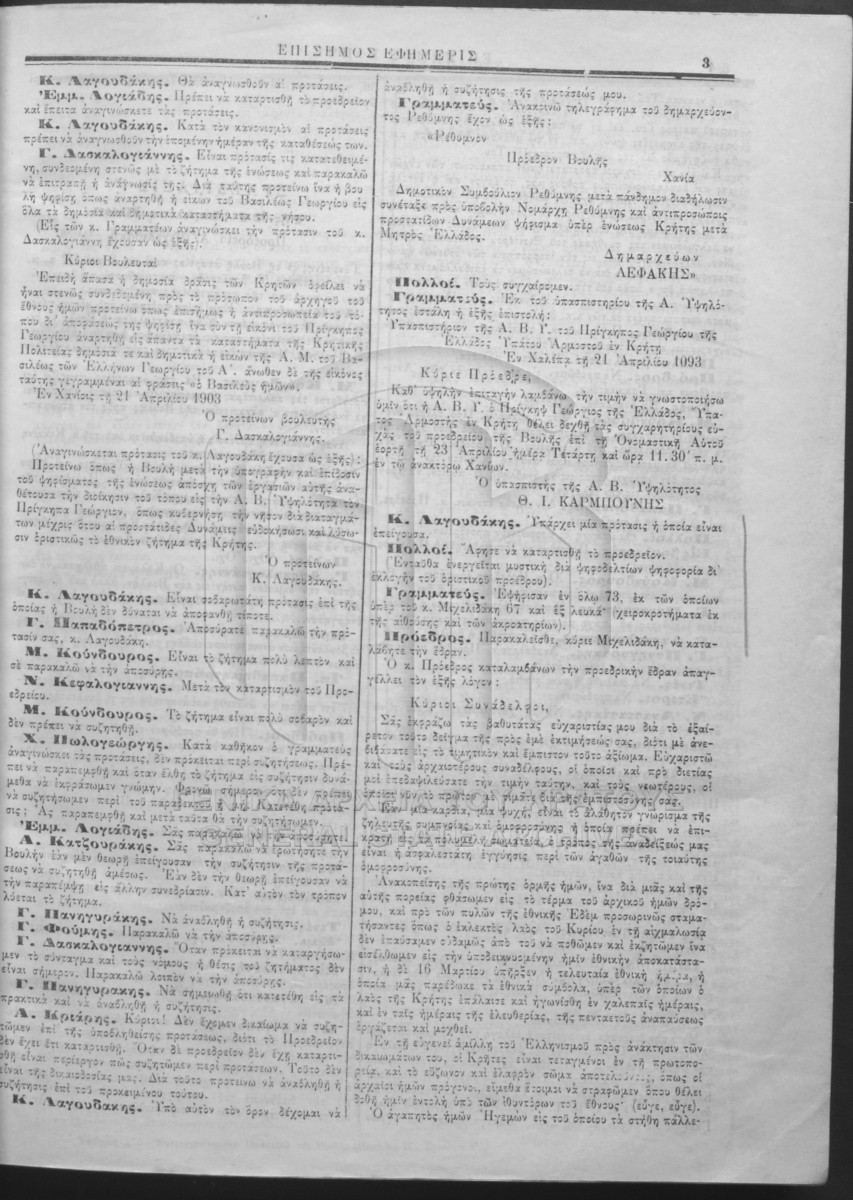 ΕΠΙΣΗΜΟΣ ΕΦΗΜΕΡΙΣ
3
Κ. Λαγουδάκης. Θὰ ἀναγνωσθοῦν αἱ προτάσεις.
Ἐμμ. Λογιάδης. Πρέπει νὰ καταρτισθῇ τὸ προεδρεῖον
καὶ ἔπειτα ἀναγινώσκετε τὰς προτάσεις.
Κ. Λαγουδάκης. Κατὰ τὸν κανονισμὸν αἱ προτάσεις
πρέπει νὰ ἀναγνωσθοῦν τὴν ἑπομένην ἡμέραν τῆς καταθέσεώς των.
Γ. Δασκαλογιάννης. Εἶναι πρότασίς τις κατατεθειμέ-
νη, συνδεομένη στενῶς μὲ τὸ ζήτημα τῆς ἑνώσεως καὶ παρακαλῶ
νὰ ἐπιτραπῇ ἡ ἀνάγνωσίς της. Διὰ ταύτης προτείνω ἵνα ἡ βου
λὴ ψηφίσῃ ὅπως ἀναρτηθῇ ἡ εἰκὼν τοῦ Βασιλέως Γεωργίου εἰς
ὅλα τὰ δημόσια καὶ δημοτικὰ καταστήματα τῆς νήσου.
(Εἷς τῶν κ. Γραμματέων ἀναγινώσκει τὴν πρότασιν τοῦ κ.
Δασκαλογιάννη ἔχουσαν ὡς ἑξῆς).
Κύριοι Βουλευταί
Ἐπειδὴ ἅπασα ἡ δημοσία δρᾶσις τῶν Κρητῶν ὀφείλει νὰ
ἦναι στενῶς συνδεδεμένη πρὸς τὸ πρόσωπον τοῦ ἀρχηγοῦ τοῦ
ἔθνους ἡμῶν προτείνω ὅπως ἐπισήμως ἡ ἀντιπροσωπεία τοῦ τό-
που δι' ἀποφάσεως της ψηφίσῃ ἵνα σὺν τῇ εἰκόνι τοῦ Πρίγκηπος
Γεωργίου ἀναρτηθῇ εἰς ἅπαντα τὰ καταστήματα τῆς Κρητικῆς
Πολιτείας δημόσιά τε καὶ δημοτικὰ ἡ εἰκὼν τῆς Α. Μ. τοῦ Βα-
σιλέως τῶν Ἑλλήνων Γεωργίου τοῦ Α'. ἄνωθεν δὲ τῆς εἰκόνος
ταύτης γεγραμμέναι αἱ φράσεις «ὁ Βασιλεὺς ἡμῶν».
Ἐν Χανίοις τῇ 21 Ἀπριλίου 1903
Ὁ προτείνων βουλευτὴς
Γ. Δασκαλογιάννης.
(Ἀναγινώσκεται πρότασις τοῦ κ. Λαγουδάκη ἔχουσα ὡς ἑξῆς):
Προτείνω ὅπως ἡ Βουλὴ μετὰ τὴν ὑπογραφὴν καὶ ἐπίδοσιν
τοῦ ψηφίσματος τῆς ἑνώσεως ἀπόσχῃ τῶν ἐργασιῶν αὐτῆς ἀνα-
θέτουσα τὴν διοίκησιν τοῦ τόπου εἰς τὴν Α. Β. Ὑψηλότητα τὸν
Πρίγκηπα Γεώργιον, ὅπως κυβερνήσῃ τὴν νῆσον διὰ διαταγμά-
των μέχρις ὅτου αἱ προστάτιδες Δυνάμεις εὐδοκήσωσι καὶ λύσω-
σιν ὁριστικῶς τὸ ἐθνικὸν ζήτημα τῆς Κρήτης.
Ὁ προτείνων
Κ. Λαγουδάκης.
Κ. Λαγουδάκης. Εἶναι σοβαρωτάτη πρότασις ἐπὶ τῆς
ὁποίας ἡ Βουλὴ δὲν δύναται νὰ ἀποφανθῇ τίποτε.
Γ. Παπαδόπετρος. Ἀποσύρατε παρακαλῶ τὴν πρό-
τασίν σας, κ. Λαγουδάκη.
Μ. Κούνδουρος. Εἶναι τὸ ζήτημα πολὺ λεπτὸν καὶ
σὲ παρακαλῶ νὰ τὴν ἀποσύρῃς.
Ν. Κεφαλογιαννης. Μετὰ τὸν καταρτισμὸν τοῦ Προ-
εδρείου.
Μ. Κούνδουρος. Τὸ ζήτημα εἶναι πολὺ σοβαρὸν καὶ
δὲν πρέπει νὰ συζητηθῇ.
Χ. Πωλογεώργης. Κατὰ καθῆκον ὁ γραμματεὺς
ἀναγινώσκει τὰς προτάσεις, δὲν πρόκειται περὶ συζητήσεως. Πρέ-
πει νὰ παραπεμφθῇ καὶ ὅταν ἔλθῃ τὸ ζήτημα εἰς συζήτησιν δυνά-
μεθα νὰ ἐκφράσωμεν γνώμην. Φρονῶ σήμερον ὅτι δὲν πρέπει
νὰ συζητήσωμεν περὶ τοῦ παραδεκτοῦ ἢ μή. Κατετέθη πρότα-
σις; Ἂς παραπεμφθῇ καὶ μετὰ ταῦτα θὰ τὴν συζητήσωμεν.
Ἐμμ. Λογιάδης. Σᾶς παρακαλῶ νὰ τὴν ἀποσύρητε.
Α. Κατζουράκης. Σᾶς παρακαλῶ νὰ ἐρωτήσητε τὴν
Βουλὴν ἐὰν μὲν θεωρῇ ἐπείγουσαν τὴν συζήτησιν τῆς προτά-
σεως νὰ συζητηθῇ ἀμέσως. Ἐὰν δὲν τὴν θεωρῇ ἐπείγουσαν νὰ
τὴν παραπέμψῃ εἰς ἄλλην συνεδρίασιν. Κατ' αὐτὸν τὸν τρόπον
λύεται τὸ ζήτημα.
Γ. Πανηγυράκης. Νὰ ἀναβληθῇ ἡ συζήτησις.
Γ. Φούμης. Παρακαλῶ νὰ τὴν ἀποσύρῃς.
Γ. Δασκαλογιαννης. Ὅταν πρόκειται νὰ καταργήσω-
μεν τὸ σύνταγμα καὶ τοὺς νόμους ἡ θέσις τοῦ ζητήματος δὲν
εἶναι σήμερον. Παρακαλῶ λοιπὸν νὰ τὴν ἀποσύρῃς.
Γ. Πανηγυρακης. Νὰ σημειωθῇ ὅτι κατετέθη εἰς τὰ
πρακτικὰ καὶ νὰ ἀναβληθῇ ἡ συζήτησις.
Α. Κριάρης. Κύριοι! Δὲν ἔχομεν δικαίωμα νὰ συζη-
τῶμεν ἐπὶ τῆς ὑποβληθείσης προτάσεως, διότι τὸ Προεδρεῖον
δὲν ἔχει ἔτι καταρτισθῆ. Ὅταν δὲ προεδρεῖον δὲν ἔχῃ καταρτι-
σθῆ εἶναι περίεργον πῶς συζητῶμεν περὶ προτάσεων. Τοῦτο δὲν
εἶναι τῆς δικαιοδοσίας μας. Διὰ τοῦτο προτείνω νὰ ἀναβληθῇ ἡ
συζήτησις ἐπὶ τοῦ προκειμένου τούτου.
Κ. Λαγουδακης. Ὑπὸ αὐτὸν τὸν ὅρον δέχομαι νὰ
ἀναβληθῇ ἡ συζήτησις τῆς προτάσεώς μου.
Γραμματεύς. Ἀνακοινῶ τηλεγράφημα τοῦ δημαρχεύον-
τος Ῥεθύμνης ἔχον ὡς ἑξῆς:
«Ῥέθυμνον
Πρόεδρον Βουλῆς
Χανία
Δημοτικὸν Συμβούλιον Ῥεθύμνης μετὰ πάνδημον διαδήλωσιν
συνέταξε πρὸς ὑποβολὴν Νομάρχῃ Ῥεθύμνης καὶ ἀντιπροσώποις
προστατίδων Δυνάμεων ψήφισμα ὑπὲρ ἑνώσεως Κρήτης μετὰ
Μητρὸς Ἑλλάδος.
Δημαρχεύων
ΛΕΦΑΚΗΣ»
Πολλοί. Τοὺς συγχαίρομεν.
Γραμματεύς. Ἐκ τοῦ ὑπασπιστηρίου τῆς Α. Ὑψηλό-
τητος ἐστάλη ἡ ἑξῆς ἐπιστολή:
Ὑπασπιστήριον τῆς Α. Β. Υ. τοῦ Πρίγκηπος Γεωργίου τῆς
Ἑλλάδος Ὑπάτου Ἁρμοστοῦ ἐν Κρήτῃ
Ἐν Χαλέπᾳ τῇ 21 Ἀπριλίου 1093
Κύριε Πρόεδρε,
Καθ' ὑψηλὴν ἐπιταγὴν λαμβάνω τὴν τιμὴν νὰ γνωστοποιήσω
ὑμῖν ὅτι ἡ Α. Β. Υ. ὁ Πρίγκηψ Γεώργιος τῆς Ἑλλάδος, Ὕπα-
τος Ἁρμοστὴς ἐν Κρήτῃ θέλει δεχθῆ τὰς συγχαρητηρίους εὐ-
χὰς τοῦ προεδρείου τῆς Βουλῆς ἐπὶ τῇ Ὀνομαστικῇ Αὐτοῦ
ἑορτῇ τῇ 23 Ἀπριλίου ἡμέρᾳ Τετάρτῃ καὶ ὥρᾳ 11.30' π. μ.
ἐν τῷ ἀνακτόρῳ Χανίων.
Ὁ ὑπασπιστὴς τῆς Α. Β. Ὑψηλότητος
Θ. Ι. ΚΑΡΜΠΟΥΝΗΣ
Κ. Λαγουδάκης. Ὑπάρχει μία πρότασις ἡ ὁποία εἶναι
ἐπείγουσα.
Πολλοί. Ἄφησε νὰ καταρτισθῇ τὸ προεδρεῖον.
(Ἐνταῦθα ἐνεργεῖται μυστικὴ διὰ ψηφοδελτίων ψηφοφορία δι'
ἐκλογὴν τοῦ ὁριστικοῦ προέδρου).
Γραμματεύς. Ἐψήφισαν ἐν ὅλῳ 73, ἐκ τῶν ὁποίων
ὑπὲρ τοῦ κ. Μιχελιδάκη 67 καὶ ἓξ λευκά· (χειροκροτήματα ἐκ
τῆς αἰθούσης καὶ τῶν ἀκροατηρίων).
Πρόεδρος. Παρακαλεῖσθε, κύριε Μιχελιδάκη, νὰ κατα-
λάβητε τὴν ἕδραν.
Ὁ κ. Πρόεδρος καταλαμβάνων τὴν προεδρικὴν ἕδραν ἀπαγ-
γέλλει τὸν ἑξῆς λόγον:
Κύριοι Συνάδελφοι,
Σᾶς ἐκφράζω τὰς βαθυτάτας εὐχαριστίας μου διὰ τὸ ἐξαί-
ρετον τοῦτο δεῖγμα τῆς πρὸς ἐμὲ ἐκτιμήσεώς σας, διότι μὲ ἀνε-
βιβάσατε εἰς τὸ τιμητικὸν καὶ ἔμπιστον τοῦτο ἀξίωμα. Εὐχαριστῶ
καὶ τοὺς ἀρχαιοτέρους συναδέλφους, οἱ ὁποῖοι καὶ πρὸ διετίας
μοὶ ἐπεδαψιλεύσατε τὴν τιμὴν ταύτην, καὶ τοὺς νεωτέρους, οἱ
ὁποῖοι νῦν τὸ πρῶτον μὲ τιμᾶτε διὰ τῆς ἐμπιστοσύνης σας.
Ἐὰν μία καρδία, μία ψυχὴ, εἶναι τὸ ἀλάθητον γνώρισμα τῆς
ζηλευτῆς συμπνοίας καὶ ὁμοφροσύνης ἡ ὁποία πρέπει νὰ ἐπι-
κρατῇ εἰς τὰ πολυμελῆ σωματεῖα, ὁ τρόπος τῆς ἀναδείξεώς μας
εἶναι ἡ ἀσφαλεστάτη ἐγγύησις περὶ τῶν ἀγαθῶν τῆς τοιαύτης
ὁμοφροσύνης.
Ἀνακοπείσης τῆς πρώτης ὁρμῆς ἡμῶν, ἵνα διὰ μιᾶς καὶ τῆς
αὐτῆς πορείας φθάσωμεν εἰς τὸ τέρμα τοῦ ἀρχικοῦ ἡμῶν δρό-
μου, καὶ πρὸ τῶν πυλῶν τῆς ἐθνικῆς Ἐδὲμ προσωρινῶς σταμα-
τήσαντες ὅπως ὁ ἐκλεκτὸς λαὸς τοῦ Κυρίου ἐν τῇ αἰχμαλωσίᾳ
δὲν ἐπαύσαμεν οὐδαμῶς ἀπὸ τοῦ νὰ ποθῶμεν καὶ ἐκζητῶμεν ἵνα
εἰσέλθωμεν εἰς τὴν ὑποδεικνυομένην ἡμῖν ἐθνικὴν ἀποκατάστα-
σιν, ἡ δὲ 16 Μαρτίου ὑπῆρξεν ἡ τελευταία ἐθνικὴ ἡμέρα, ἡ
ὁποία μᾶς παρέδωκε τὰ ἐθνικὰ σύμβολα, ὑπὲρ τῶν ὁποίων ὁ
λαὸς τῆς Κρήτης ἐπάλαισε καὶ ἠγωνίσθη ἐν χαλεπαῖς ἡμέραις,
καὶ ἐν ταῖς ἡμέραις τῆς ἐλευθερίας, τῆς πενταετοῦς ἀναπαύσεως
ἐργάζεται καὶ μοχθεῖ.
Ἐν τῇ εὐγενεῖ ἁμίλλῃ τοῦ Ἑλληνισμοῦ πρὸς ἀνάκτησιν τῶν
δικαιωμάτων του, οἱ Κρῆτες εἶναι τεταγμένοι ἐν τῇ πρωτοπο-
ρείᾳ, καὶ τὸ εὔζωνον καὶ ἐλαφρὸν σῶμα ἀποτελοῦντες, ὅπως οἱ
ἀρχαῖοι ἡμῶν πρόγονοι, εἴμεθα ἕτοιμοι νὰ στραφῶμεν ὅπου θέλει
δοθῆ ἡμῖν ἐντολὴ ὑπὸ τῶν ἰθυντόρων τοῦ ἔθνους· (εὖγε, εὖγε).
Ὁ ἀγαπητὸς ἡμῶν Ἡγεμὼν εἰς τοῦ ὁποίου τὰ στήθη πάλλε-